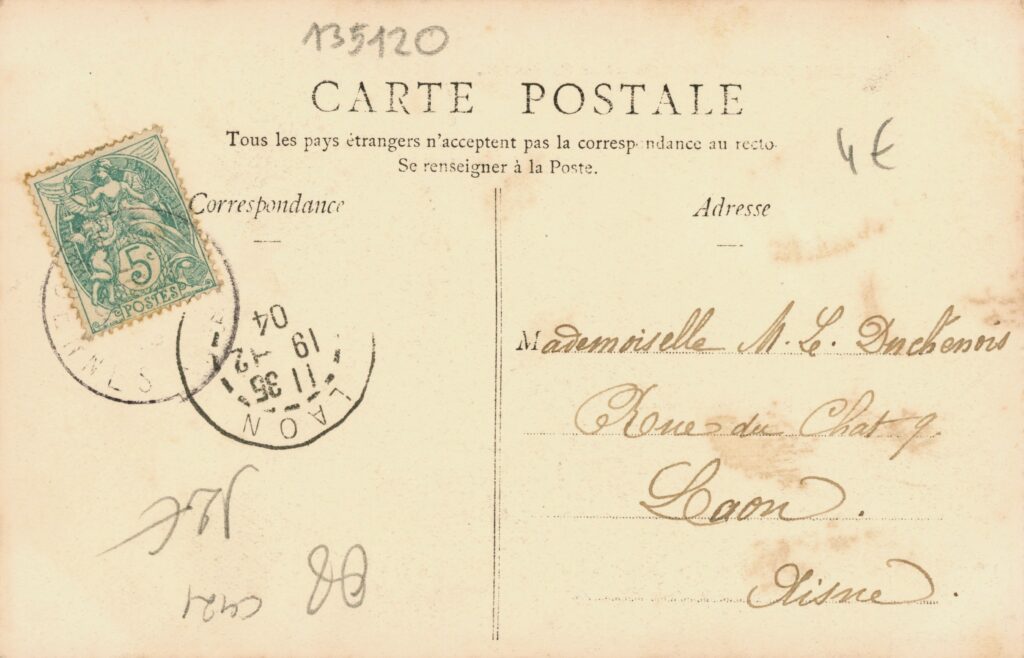 135120
CARTE POSTALE
Tous les pays étrangers n'acceptent pas la correspondance au recto
Se renseigner à la Poste.
4€
Correspondance
Adresse
5c
POSTES
LAON
11 35
19 -12
04
Mademoiselle M. L. Duchenois
Rue du Chat 9.
Laon.
Aisne.